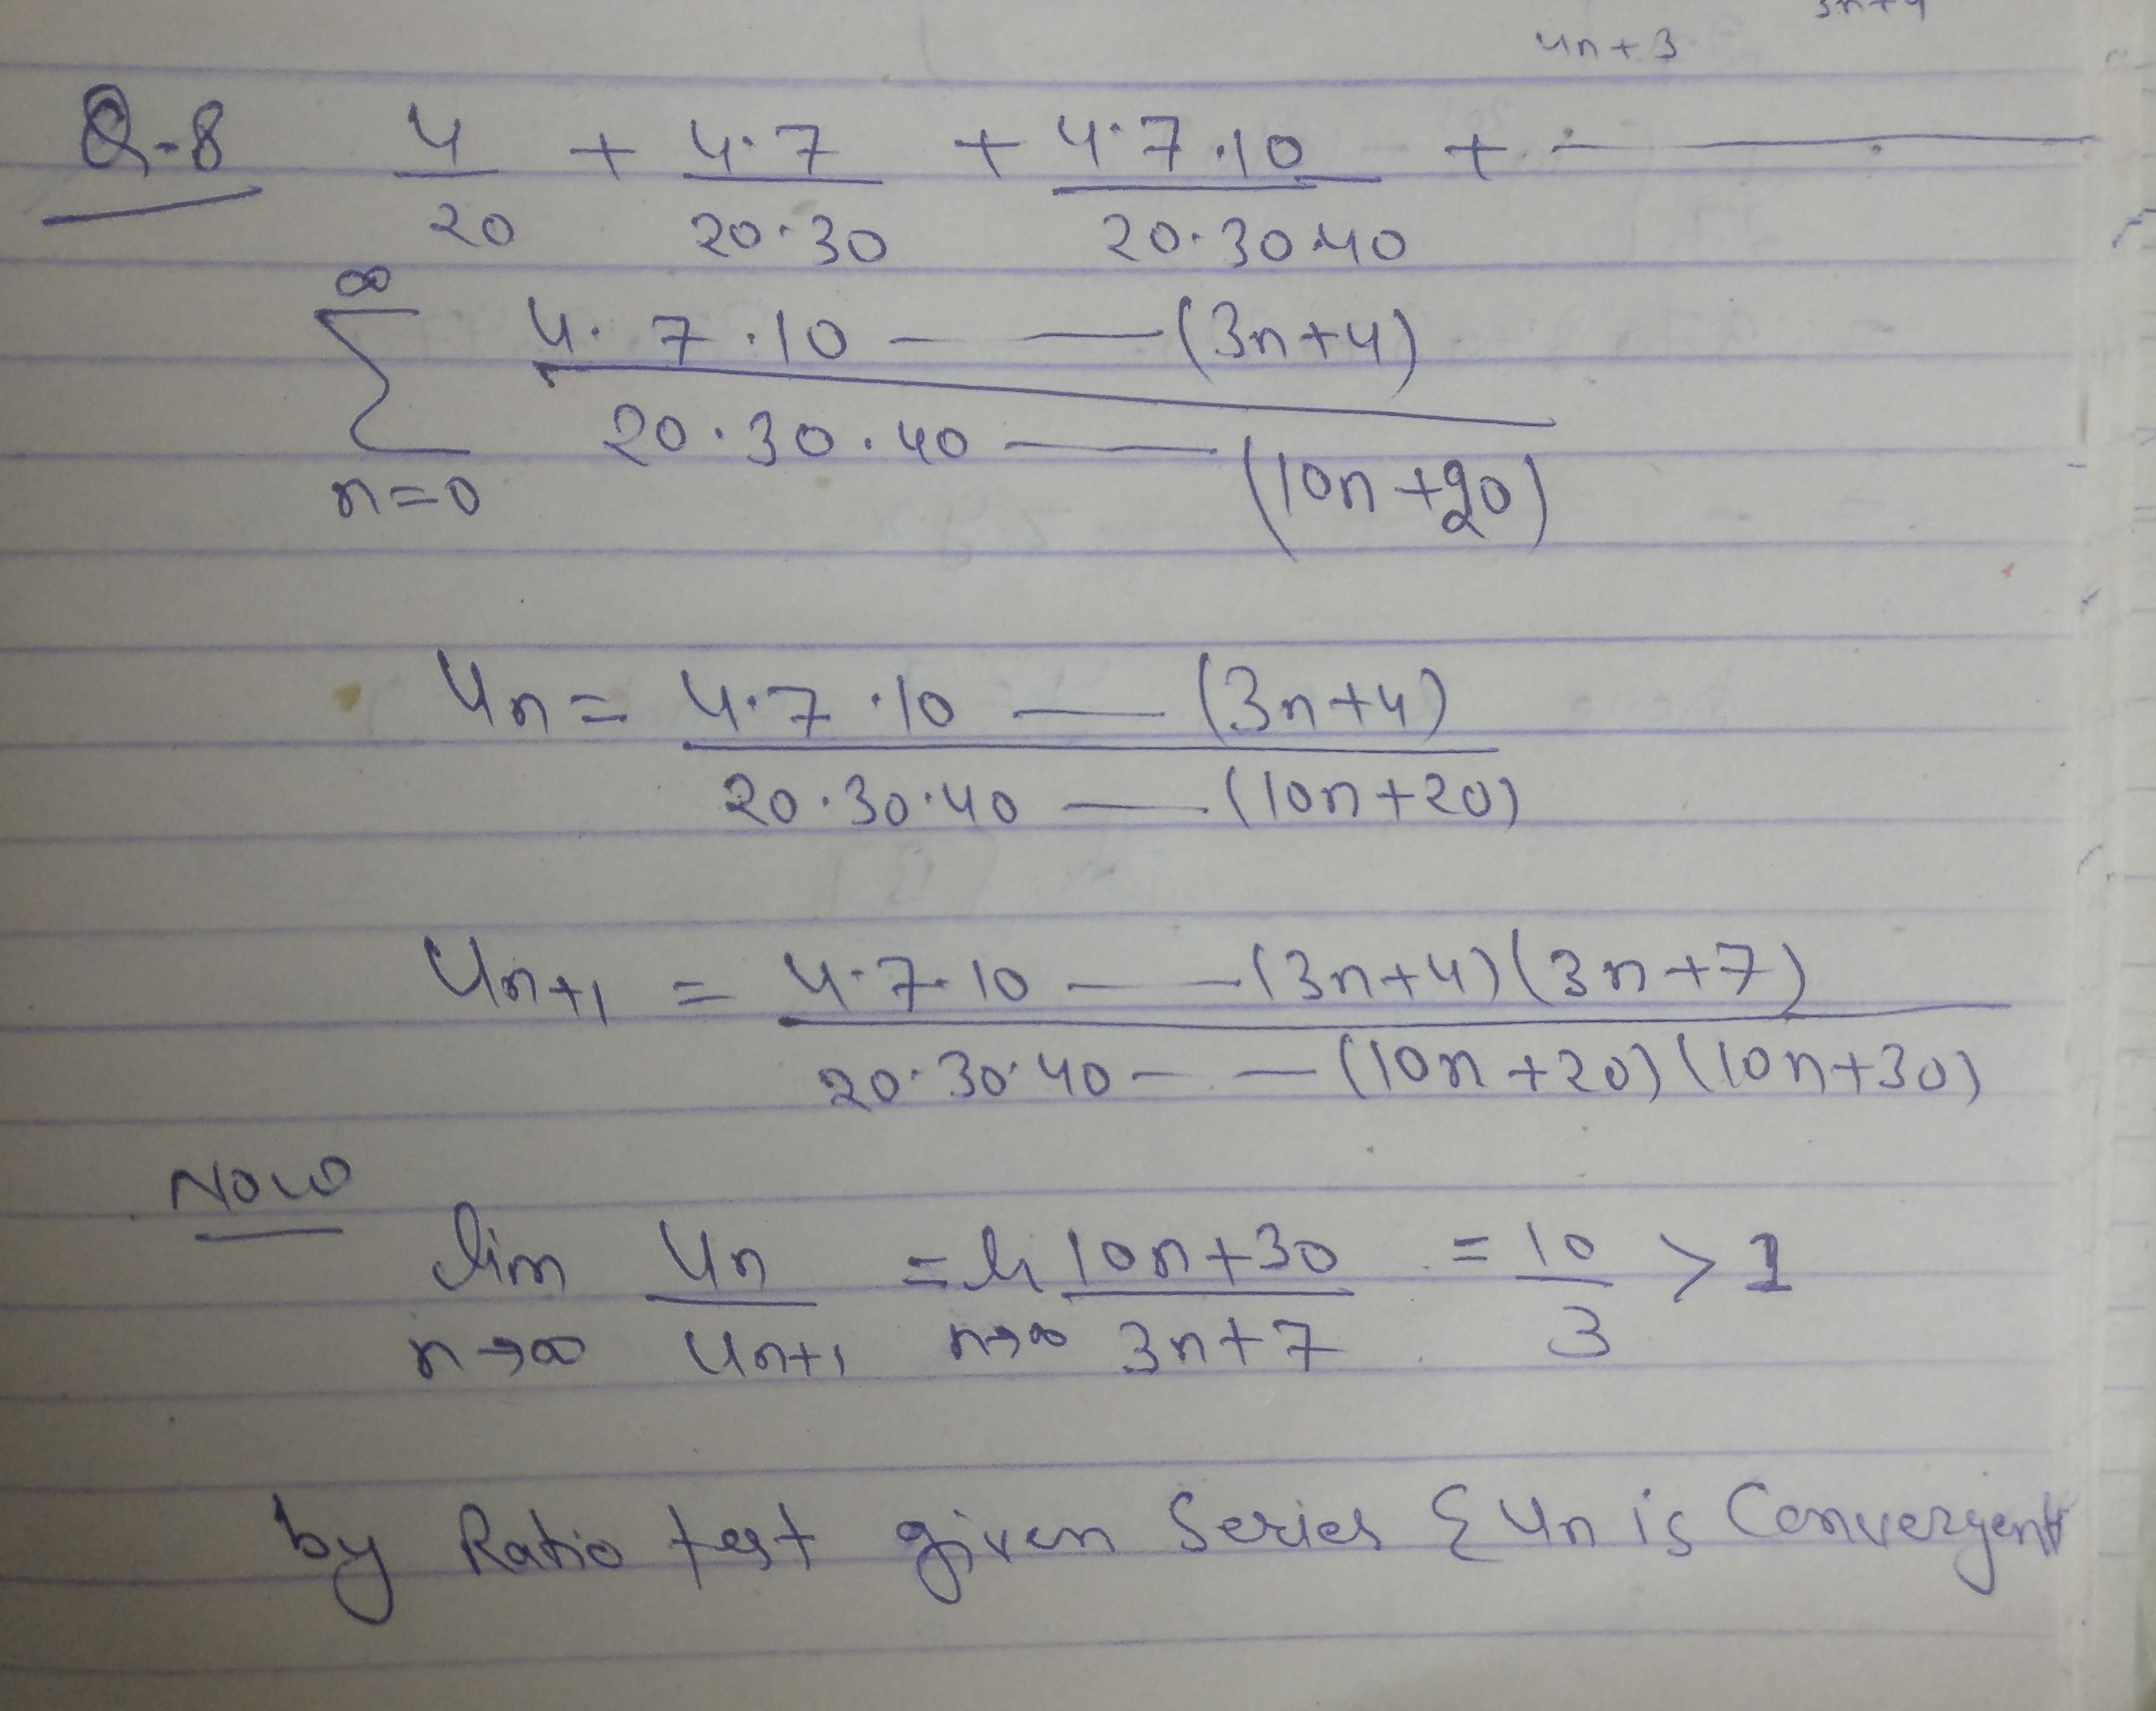 4n+3 3n+4
Q-8 4/20 + 4·7/20·30 + 4·7·10/20·30·40 + ·——·——
∞∑n=0 4·7·10 — —(3n+4)/20·30·40 ——(10n+20)
un = 4·7·10 — (3n+4)/20·30·40 — (10n+20)
un+1 = 4·7·10 — —(3n+4)(3n+7)/20·30·40 — —(10n+20)(10n+30)
Now
lim n→∞ un/un+1 = li n→∞ 10n+30/3n+7 = 10/3 > 1
by Ratio test given Series Σun is Convergent